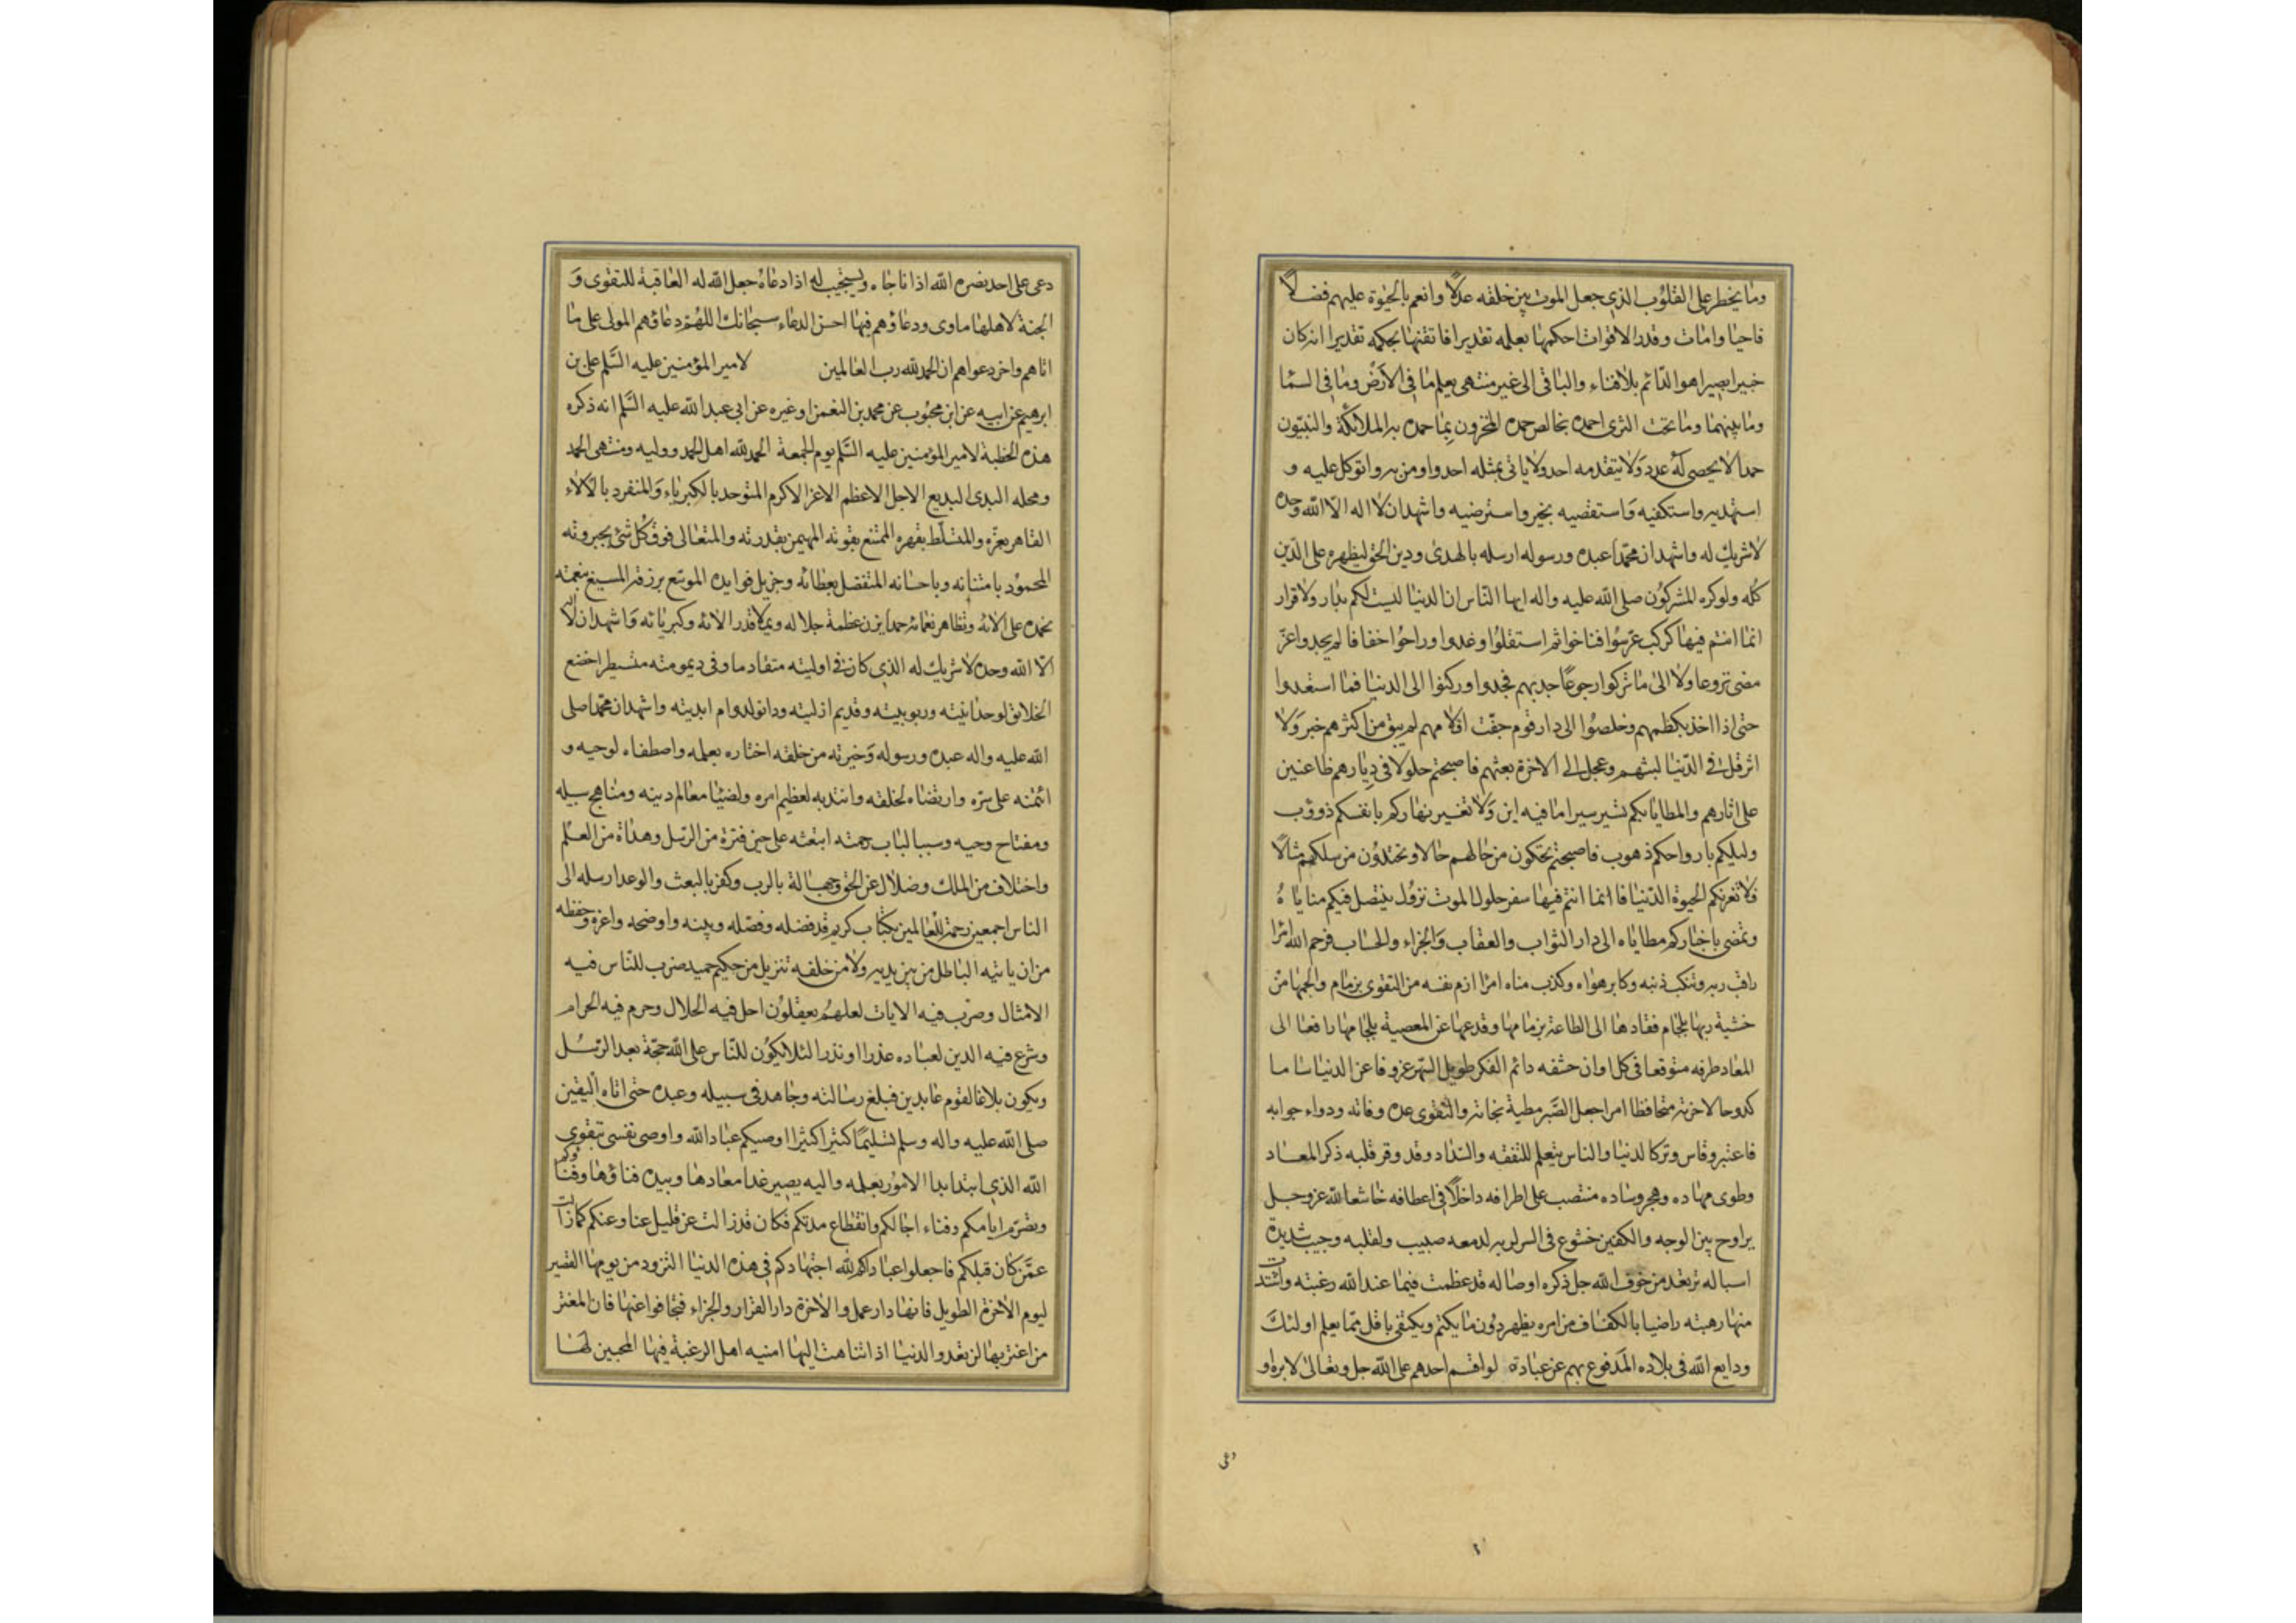 وما يخطر على القلوب الذي جعل الموت بين خلقه عدلا وانعم بالحيوة عليهم فضلا
فاحيا وامات وقدر الاقوات احكمها بعلمه تقديرا فاتقنها بحكمه تقديرا انه كان
خبيرا بصيرا هو الدائم بلافناء والباقي الى غير منتهى يعلم ما في الارض وما في السما
وما بينهما وما تحت الثرى احمده بخالص حمده المخزون بما حمده به الملائكة والنبيون
حمدا لا يحصى له عدد ولا يتقدمه احد ولا ياتي بمثله احد واومن به واتوكل عليه و
استهديه واستكفيه واستقضيه بخير واسترضيه واشهد ان لا اله الا الله وحده
لا شريك له واشهد ان محمدا عبده ورسوله ارسله بالهدى ودين الحق ليظهره على الدين
كله ولو كره المشركون صلى الله عليه واله ايها الناس ان الدنيا ليست لكم بدار ولا قرار
انما انتم فيها كركب عرسوا فناخوا ثم استقلوا وغدوا وراحوا خفافا لم يجدوا عن
مضى نزوعا ولا الى ما تركوا رجوعا جد بهم فجدوا وركنوا الى الدنيا فما استعدوا
حتى اذا اخذ بكظمهم وخلصوا الى دار قوم جفت اقلامهم لم يبق من اكثرهم خبر ولا
اثر قل في الدنيا لبثهم وعجل الى الاخرة بعثهم فاصبحتم حلولا في ديارهم ظاعنين
على اثارهم والمطايا بكم تسير سيرا ما فيه اين ولا تفتير نهاركم بانفسكم دؤوب
وليلكم بارواحكم ذهوب فاصبحتم تحكون من حالهم حالا وتحتذون من سلكهم مثالا
فلا تغرنكم الحيوة الدنيا فانما انتم فيها سفر حلول الموت نزول ينتضل فيكم مناياه
وتمضي باخباركم مطاياه الى دار الثواب والعقاب والجزاء والحساب فرحم الله امرا
راقب ربه وتنكب ذنبه وكابر هواه وكذب مناه امرا ازم نفسه من التقوى بزمام والجمها من
خشية ربها بلجام فقادها الى الطاعة بزمامها وقدعها عن المعصية بلجامها رافعا الى
المعاد طرفه متوقعا في كل اوان حتفه دائم الفكر طويل السهر عزوفا عن الدنيا ساما
كدوحا لاخرته متحافظا امرا جعل الصبر مطية نجاته والتقوى عدة وفاته ودواء جوابه
فاعتبر وقاس وترك الدنيا والناس يتعلم للتفقه والسداد وقد وقر قلبه ذكر المعاد
وطوى مهاده وهجر وساده منتصب على اطرافه داخلا في اعطافه خاشعا لله عز وجل
يراوح بين الوجه والكفين خشوع في السر لربه لدمعه صبيب ولقلبه وجيب شديدة
اسباله ترتعد من خوف الله جل ذكره اوصاله قد عظمت فيما عند الله رغبته واشتدت
منها رهبته راضيا بالكفاف من امره يظهر دون ما يكتم ويكتفي باقل مما يعلم اولئك
ودايع الله في بلاده المدفوع بهم عن عباده لو اقسم احدهم على الله جل وتعالى لابره او
دعى
دعى على احد نصره الله اذا ناجاه ويستجيب له اذا دعاه جعل الله له العاقبة للتقوى و
الجنة لاهلها ماوى ودعاؤهم فيها احسن الدعاء سبحانك اللهم دعاؤهم المولى على ما
اتاهم واخر دعواهم ان الحمد لله رب العالمين لامير المؤمنين عليه السلم علي بن
ابرهيم عن ابيه عن ابن محبوب عن محمد بن النعمن او غيره عن ابي عبد الله عليه السلم انه ذكره
هذه الخطبة لامير المؤمنين عليه السلم يوم الجمعة الحمد لله اهل الحمد ووليه ومنتهى الحمد
ومحله البدى البديع الاجل الاعظم الاعز الاكرم المتوحد بالكبرياء والمنفرد بالالاء
القاهر بعزه والمتسلط بقهره الممتنع بقوته المهيمن بقدرته والمتعالى فوق كل شئ بجبروته
المحمود بامتنانه وباحسانه المتفضل بعطائه وجزيل فوايده الموسع برزقه المسبغ بنعمته
نحمده على الائه وتظاهر نعمائه حمدا يزن عظمة جلاله ويملا قدر الائه وكبريائه واشهد ان لا اله
الا الله وحده لا شريك له الذي كان في اوليته متقادما وفي ديموميته متسيطرا خضع
الخلائق لوحدانيته وربوبيته وقديم ازليته ودانوا لدوام ابديته واشهد ان محمدا صلى
الله عليه واله عبده ورسوله وخيرته من خلقه اختاره بعلمه واصطفاه لوحيه و
ائتمنه على سره وارتضاه لخلقه وانتدبه لعظيم امره ولضيا معالم دينه ومناهج سبيله
ومفتاح وحيه وسببا لباب رحمته ابتعثه على حين فترة من الرسل وهداة من العلم
واختلاف من الملل وضلال عن الحق وجهالة بالرب وكفر بالبعث والوعد ارسله الى
الناس اجمعين رحمة للعالمين بكتاب كريم قد فضله وفصله وبينه واوضحه واعزه وحفظه
من ان ياتيه الباطل من بين يديه ولا من خلفه تنزيل من حكيم حميد ضرب للناس فيه
الامثال وصرف فيه الايات لعلهم يعقلون احل فيه الحلال وحرم فيه الحرام
وشرع فيه الدين لعباده عذرا او نذرا لئلا يكون للناس على الله حجة بعد الرسل
ويكون بلاغا لقوم عابدين فبلغ رسالته وجاهد في سبيله وعبده حتى اتاه اليقين
صلى الله عليه واله وسلم تسليما كثيرا كثيرا اوصيكم عباد الله واوصي نفسي بتقوى
الله الذي ابتدا بدا الامور بعلمه واليه يصير غدا معادها وبيده فناؤها وفناؤكم
وتصرم ايامكم وفناء اجالكم وانقطاع مدتكم فكان قد زالت عن قليل عنا وعنكم كما زالت
عمن كان قبلكم فاجعلوا عباد الله اجتهادكم في هذه الدنيا التزود من يومها القصير
ليوم الاخرة الطويل فانها دار عمل والاخرة دار القرار والجزاء فتجافوا عنها فان المغتر
من اغتر بها لن تعدو الدنيا اذا تناهت اليها امنيه اهل الرغبة فيها المحبين لها